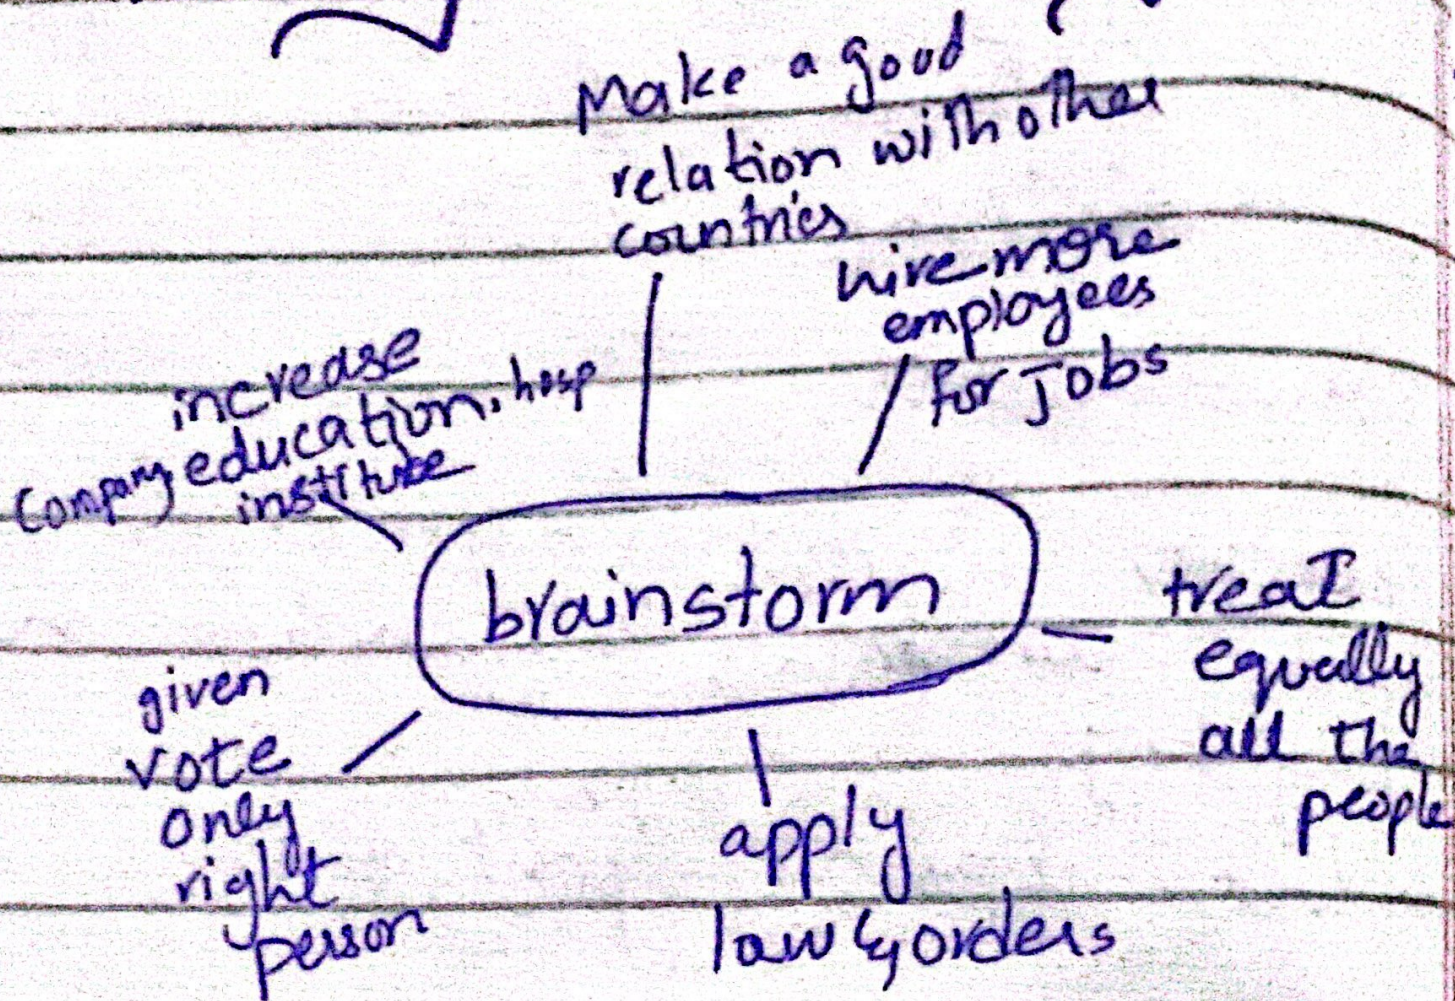 Make a good
relation with other
countries
hire more
employees
for Jobs
increase
education, hosp
company
institute
brainstorm
treat
equally
all the
people
given
vote
only
right
person
apply
law & orders